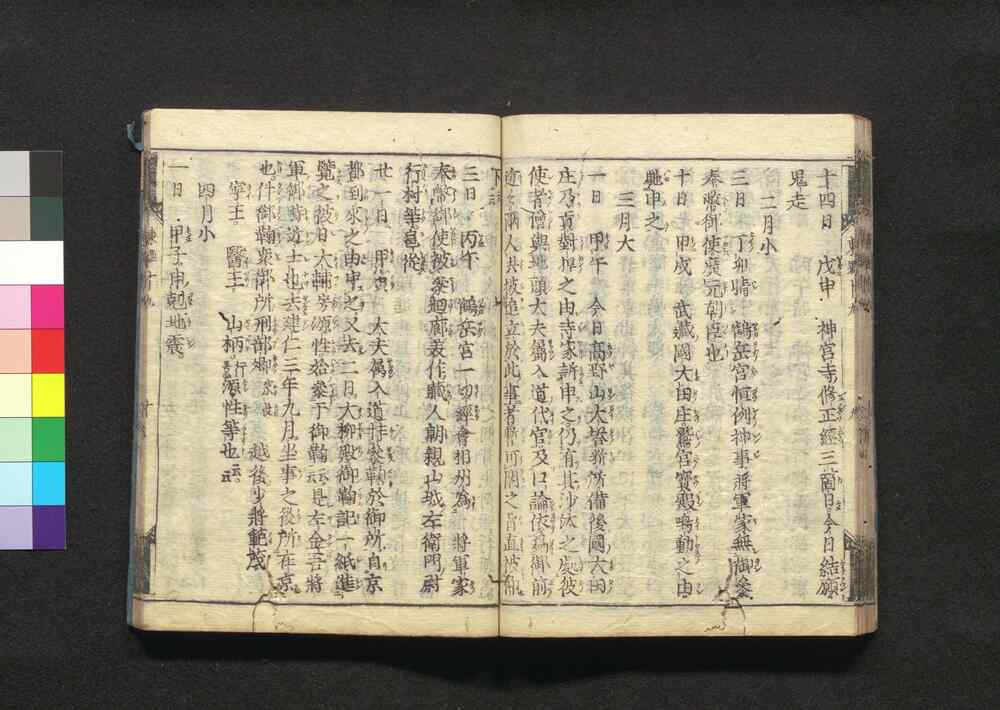 十四日 戊申 神宮寺修正經三箇日今日結願
鬼走
二月小
三日 丁卯晴 鶴岳宮恒例神事將軍家無御參
奉幣御使廣元朝臣也
十日 甲戌 武藏國大田庄鷲宮寳殿鳴動之由
馳申之
三月大
一日 甲午 今日高野山大塔料所備後國大田
庄乃貢對捍之由寺家訴申之仍有其沙汰之處彼
使者僧與地頭大夫属入道代官及口論依爲御前
近々兩人共被追立於此事者暫可閣之旨直被仰
下云云
三日 丙午 鶴岳宮一切經會相州爲 將軍家
奉幣御使被參廻廊表作藏人朝親山城左衛門尉
行村等邑從
廿一日 甲寅 大夫属入道持參鞠於御所自京
都到來之由申之又去二日大柳殿御鞠記一紙進
覽之彼日大輔房源性始參于御鞠云云是左金吾將
軍御時逆士也去建仁三年九月坐事之後所在京
也件御鞠衆御所刑部卿 越後少將範茂
寧王 醫王 山柄行源性等也云云
四月小
一日 甲子申尅地震